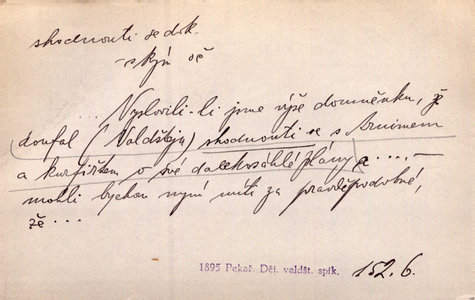 shodnouti se dok.
- s kým oč
... Vyslovili-li jsme výše domněnku, že
doufal (Valdštejn) shodnouti se s Arnimem
a kurfiřtem o své dalekosáhlé plány a ... -
mohli bychom nyní míti za pravděpodobné,
že ...
1895 Pekař. Děj. valdšt. spik. 152.6.